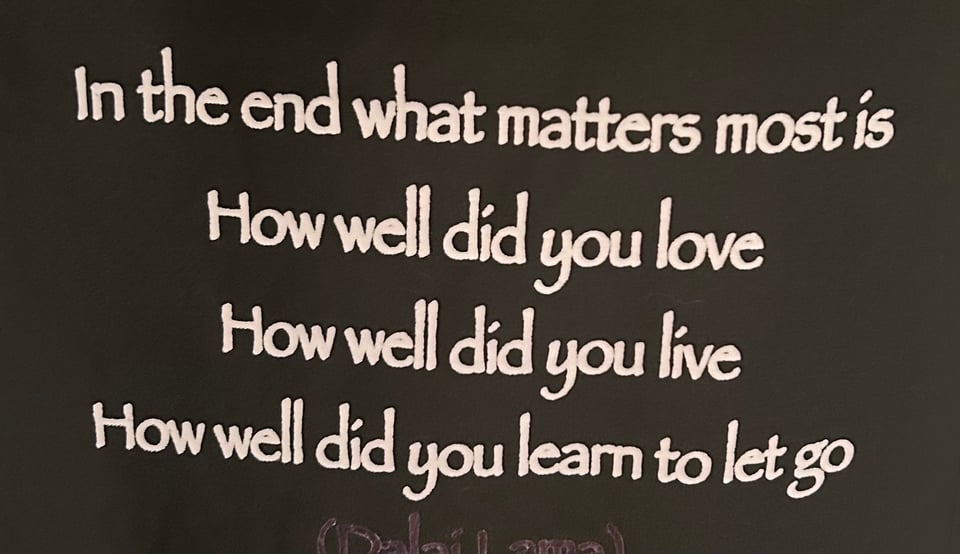 In the end what matters most is
How well did you love
How well did you live
How well did you learn to let go
(Dalai Lama)